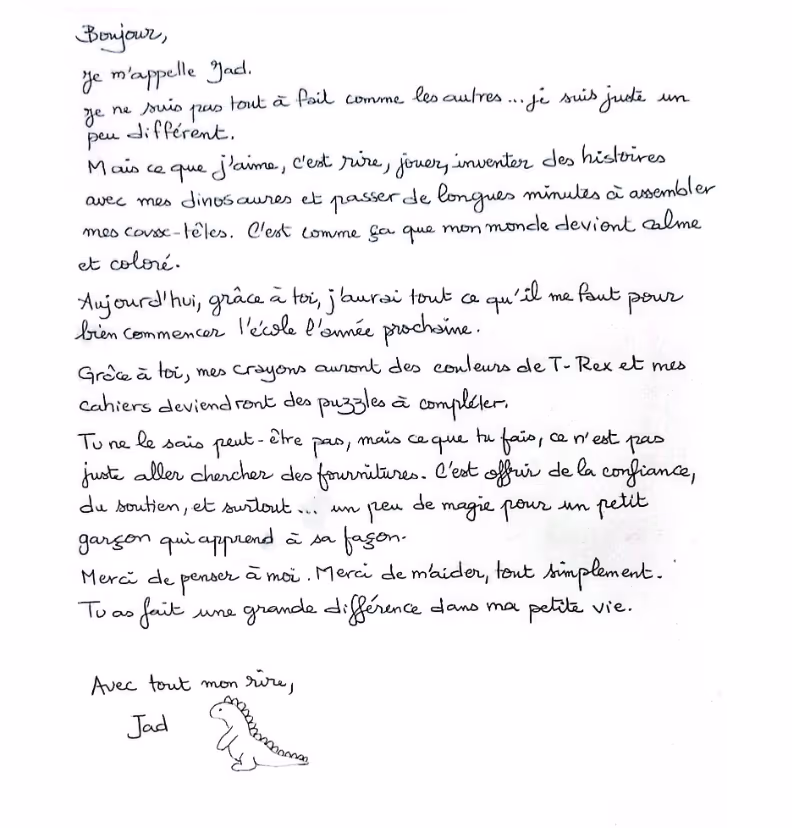 Bonjour,
Je m'appelle Jad.
Je ne suis pas tout à fait comme les autres... je suis juste un
peu différent.
Mais ce que j'aime, c'est rire, jouer, inventer des histoires
avec mes dinosaures et passer de longues minutes à assembler
mes casse-têtes. C'est comme ça que mon monde devient calme
et coloré.
Aujourd'hui, grâce à toi, j'aurai tout ce qu'il me faut pour
bien commencer l'école l'année prochaine.
Grâce à toi, mes crayons auront des couleurs de T-Rex et mes
cahiers deviendront des puzzles à compléter.
Tu ne le sais peut-être pas, mais ce que tu fais, ce n'est pas
juste aller chercher des fournitures. C'est offrir de la confiance,
du soutien, et surtout... un peu de magie pour un petit
garçon qui apprend à sa façon.
Merci de penser à moi. Merci de m'aider, tout simplement.
Tu as fait une grande différence dans ma petite vie.
Avec tout mon rire,
Jad